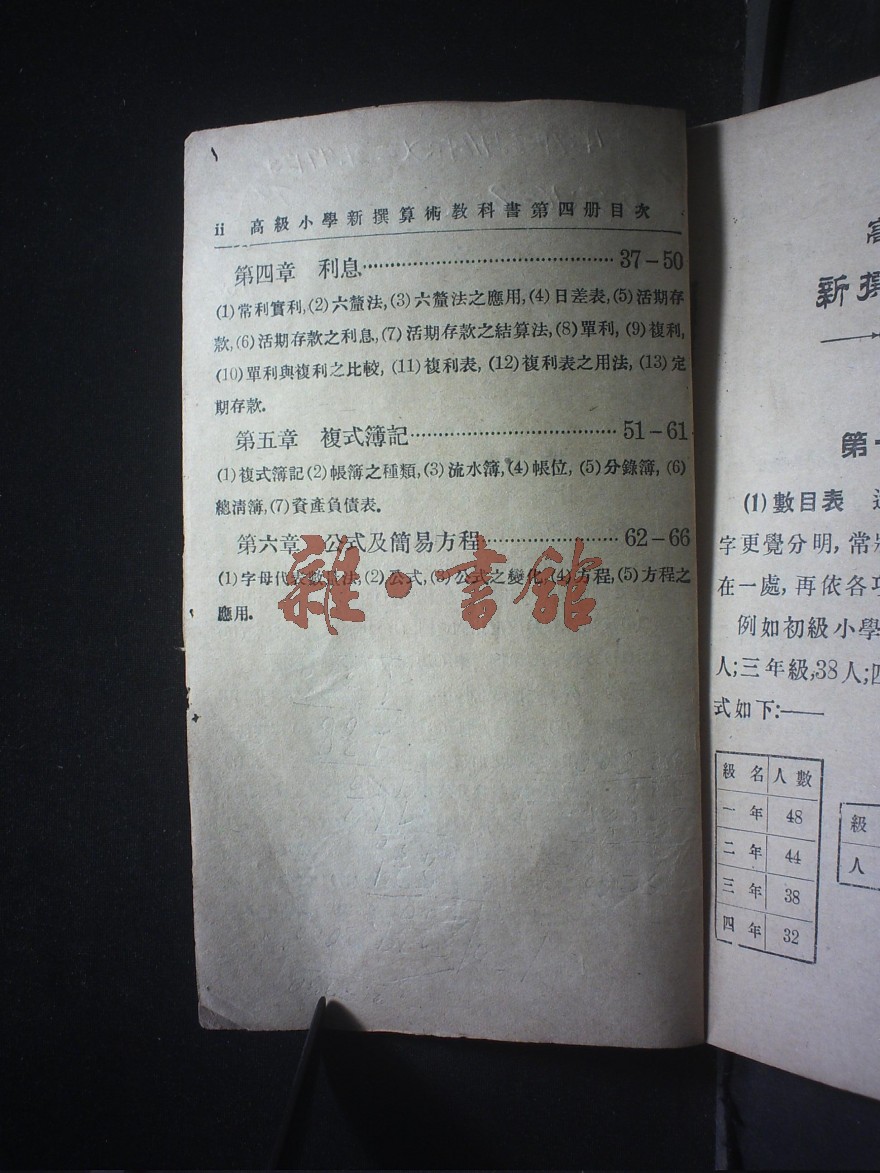 ii 高級小學新撰算術教科書第四册目次
第四章 利息……………………………37-50
(1)常利實利,(2)六釐法,(3)六釐法之應用,(4)日差表,(5)活期存
款,(6)活期存款之利息,(7)活期存款之結算法,(8)單利,(9)複利,
(10)單利與複利之比較,(11)複利表,(12)複利表之用法,(13)定
期存款.
第五章 複式簿記……………………………51-61
(1)複式簿記(2)帳簿之種類,(3)流水簿,(4)帳位,(5)分錄簿,(6)
總清簿,(7)資產負債表.
第六章 公式及簡易方程……………………62-66
(1)字母代表數量法,(2)公式,(3)公式之變化,(4)方程,(5)方程之
應用.
雜·書館
新撰
第一
(1)數目表
字更覺分明,常
在一處,再依各項
例如初級小學
人;三年級,38人;四
式如下:——
級名 人數
一年 48
二年 44
三年 38
四年 32
級
人